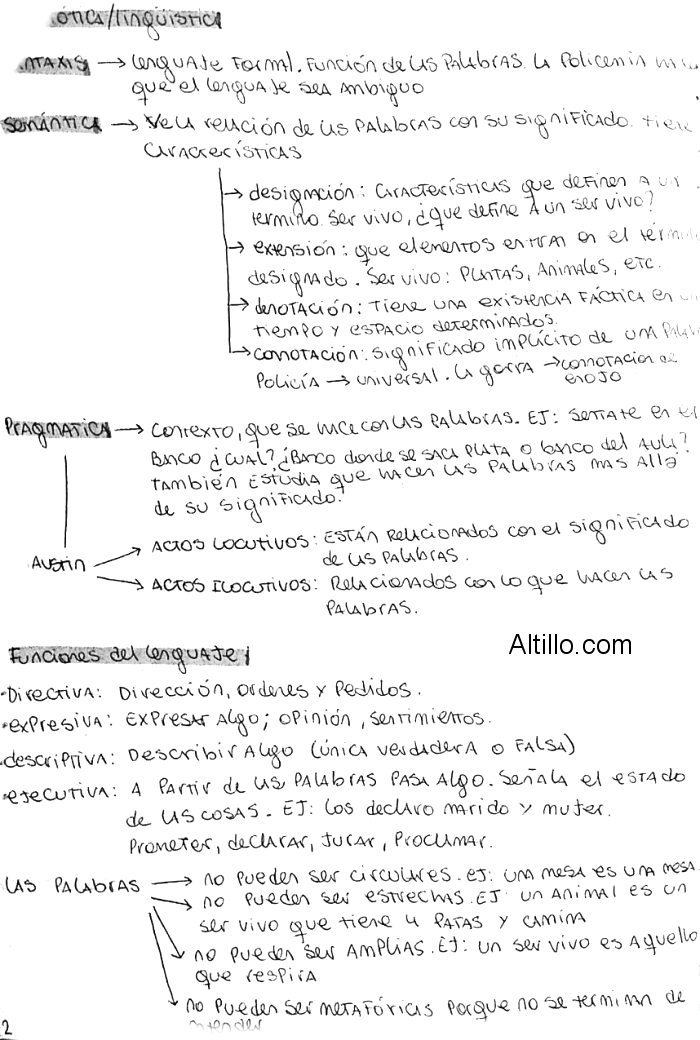 ótica/lingüística
ntaxis → lenguaje formal. Función de las palabras. La policemia hace
que el lenguaje sea ambiguo
semántica → Ve la relación de las palabras con su significado. Tiene
características
→ designación: características que definen a un
termino. ser vivo, ¿que define a un ser vivo?
→ extensión: que elementos entran en el término
designado. Ser vivo: plantas, animales, etc.
→ denotación: tiene una existencia fáctica en un
tiempo y espacio determinados.
→ connotación: significado implícito de una palab
Policía → universal. La gorra → connotacion de
enojo
Pragmatica → contexto, que se hace con las palabras. EJ: sentate en el
banco ¿cual? ¿Banco donde se saca plata o banco del aula?
también estudia que hacen las palabras mas alla
de su significado.
Austin → Actos locutivos: están relacionados con el significado
de las palabras.
→ Actos ilocutivos: Relacionados con lo que hacen las
palabras.
Altillo.com
Funciones del lenguaje
• Directiva: Dirección, ordenes y pedidos.
• expresiva: expresar algo; opinión, sentimientos.
• descriptiva: Describir algo (única verdadera o falsa)
• ejecutiva: A partir de las palabras pasa algo. Señala el estado
de las cosas. EJ: los declaro marido y mujer.
Prometer, declarar, jurar, proclamar.
Las palabras → no pueden ser circulares. ej: una mesa es una mesa
→ no pueden ser estrechas. EJ: un animal es un
ser vivo que tiene 4 patas y camina
→ no pueden ser amplias. EJ: un ser vivo es aquello
que respira
→ no pueden ser metafóricas porque no se terminan de
entender
2